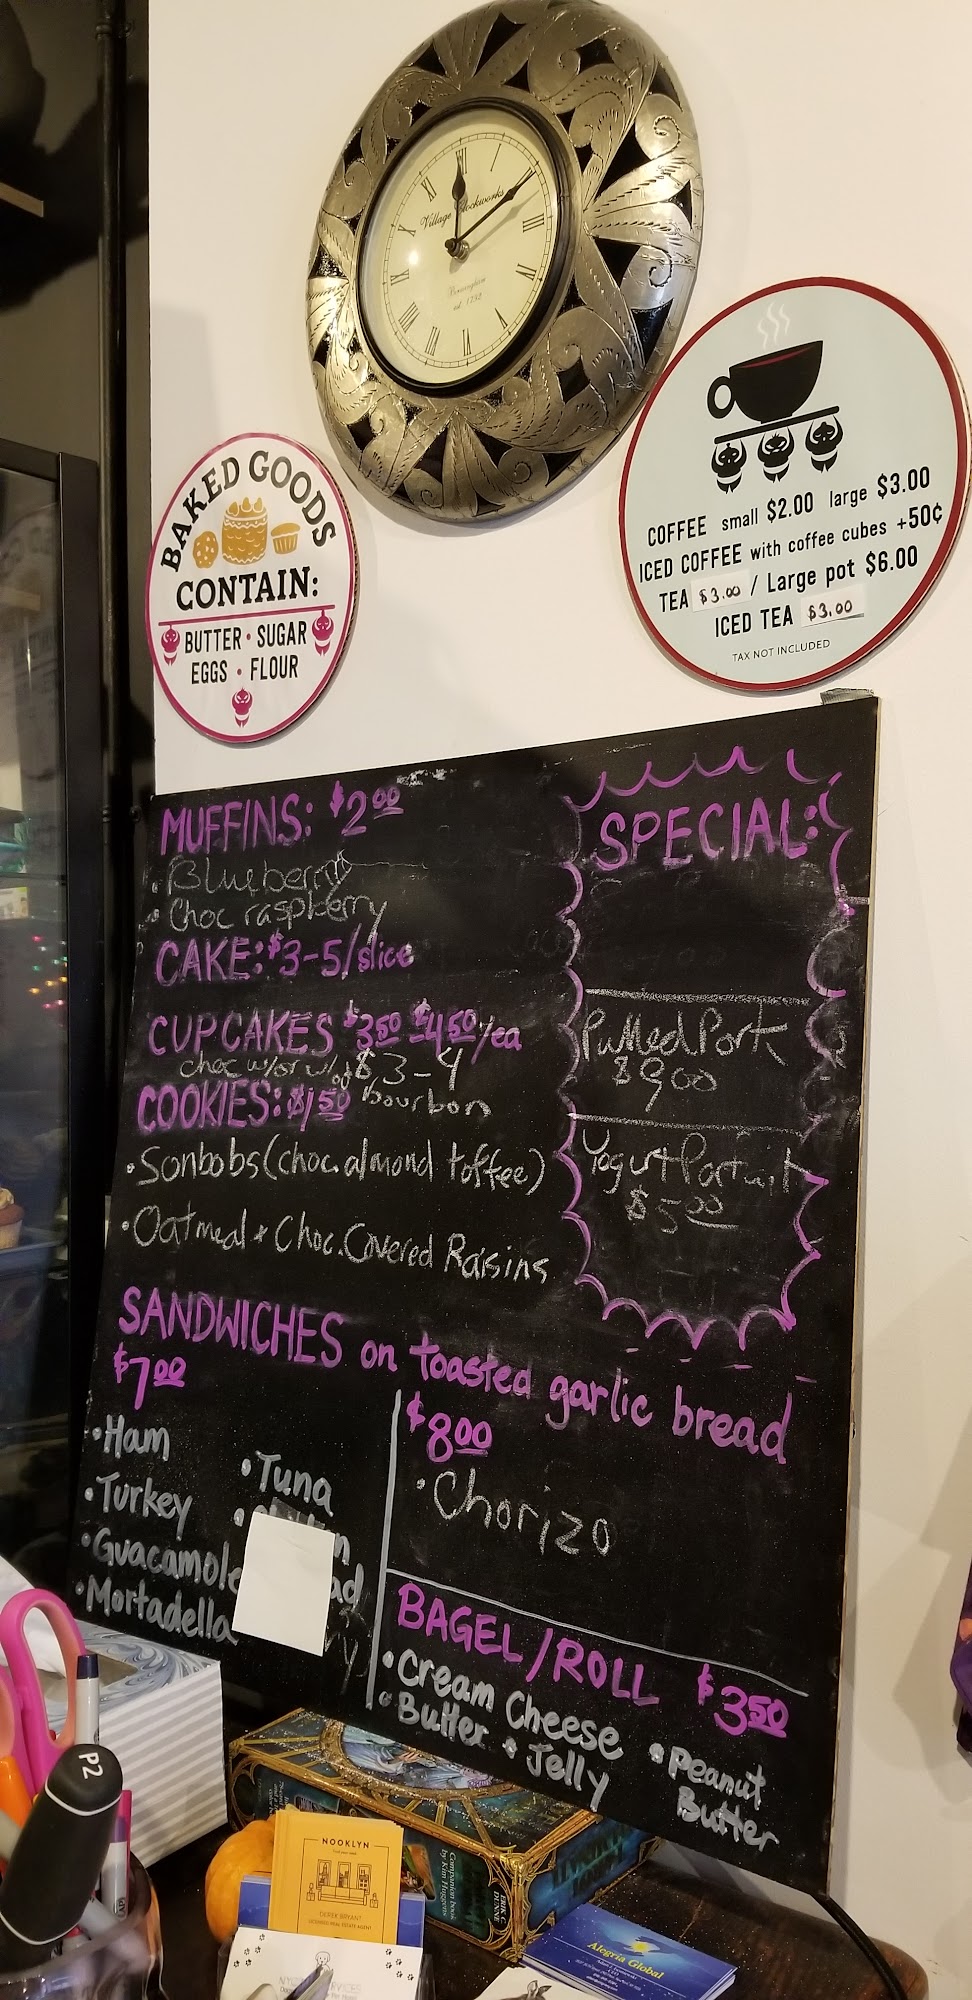 Village Clockworks
Birmingham
est 1752
BAKED GOODS
CONTAIN:
BUTTER • SUGAR
EGGS • FLOUR
COFFEE small $2.00 large $3.00
ICED COFFEE with coffee cubes +50¢
TEA $3.00 / Large pot $6.00
ICED TEA $3.00
TAX NOT INCLUDED
MUFFINS: $2.00
• Blueberry
• Choc raspberry
CAKE: $3-5/slice
CUPCAKES $3.50 $4.50/ea
choc w/or w/o $3-4
bourbon
COOKIES: $1.50
• Sonbobs (choc. almond toffee)
• Oatmeal + Choc. Covered Raisins
SPECIAL:
Pulled Pork
$9.00
Yogurt Portrait
$5.00
SANDWICHES on toasted garlic bread
$7.00
• Ham
• Turkey
• Guacamole
• Mortadella
• Tuna
$8.00
• Chorizo
BAGEL/ROLL $3.50
• Cream Cheese
• Butter
• Jelly
• Peanut
Butter
P2
NOOKLYN
DEREK BRYANT
LICENSED REAL ESTATE AGENT
Companion book
by Kim Huggens
ERIK C.
DUNNE
Alegria Global